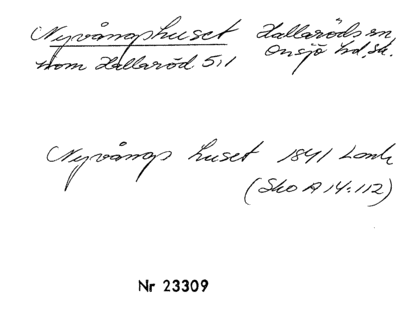 Nyvångshuset Hallaröds sn
inom Hallaröd 5:1 Onsjö hd, Sk.
Nyvångs huset 1841 Lantm
(Sko A 14:112)
Nr 23309